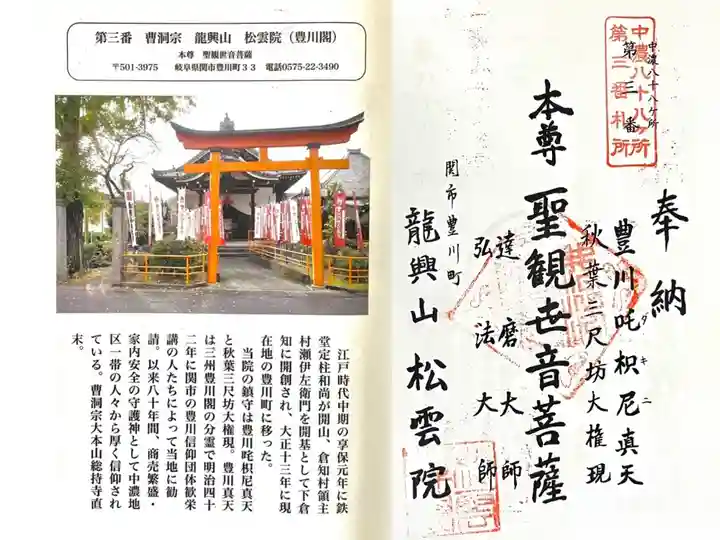 第三番　曹洞宗　龍興山　松雲院（豊川閣）
本尊　聖観世音菩薩
〒501-3975　岐阜県関市豊川町３３　電話0575-22-3490
江戸時代中期の享保元年に鉄
堂定柱和尚が開山、倉知村領主
村瀬伊左衛門を開基として下倉
知に開創され、大正十三年に現
在地の豊川町に移った。
当院の鎮守は豊川咤枳尼真天
と秋葉三尺坊大権現。豊川真天
は三州豊川閣の分霊で明治四十
二年に関市の豊川信仰団体歓栄
講の人たちによって当地に勧
請。以来八十年間、商売繁盛・
家内安全の守護神として中濃地
区一帯の人々から厚く信仰され
ている。曹洞宗大本山総持寺直
末。
中濃八十八ヶ所
第三番札所
中濃八十八ヶ所
第三番
奉納
豊川吒枳尼真天
ダキニ
秋葉三尺坊大権現
本尊 聖観世音菩薩
達磨大師
弘法大師
関市豊川町
龍興山 松雲院